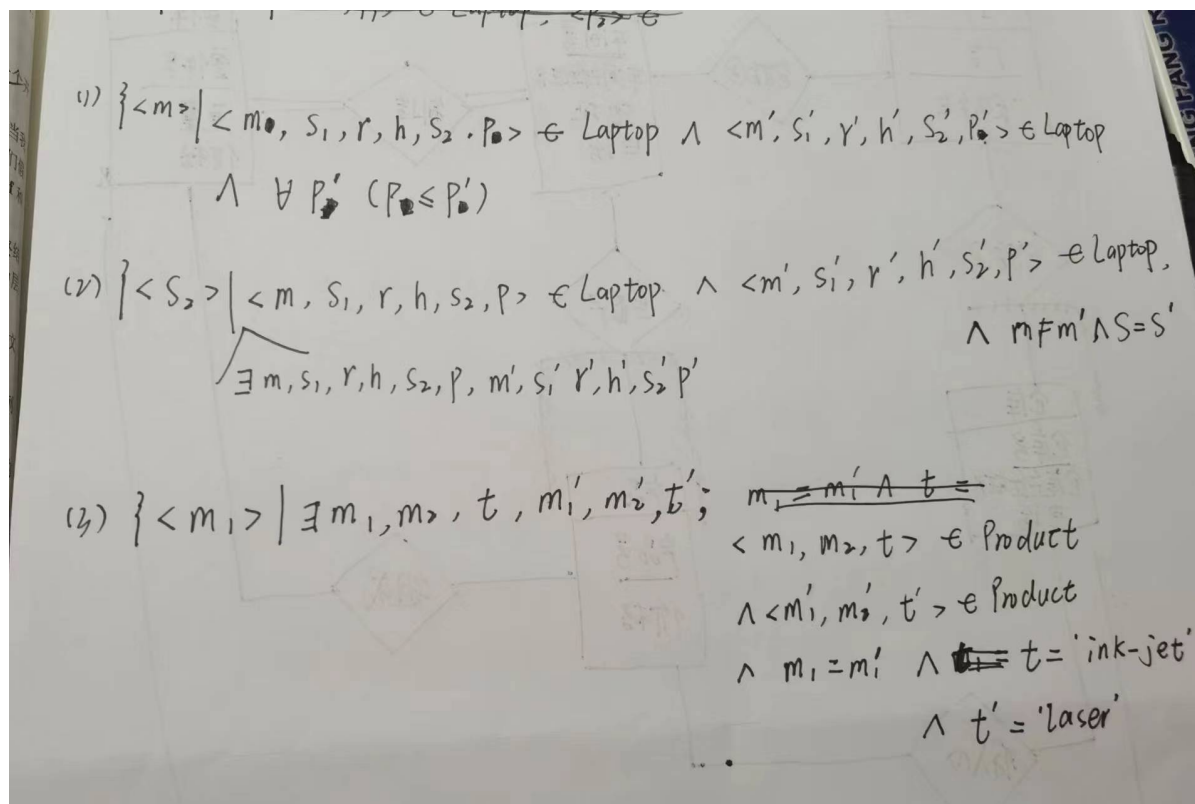 ∈ Laptop, <p₂> ∈
(1) {<m>|<m, s₁, r, h, s₂, p> ∈ Laptop ∧ <m', s₁', r', h', s₂', p'> ∈ Laptop
∧ ∀ p' (p ≤ p')
(2) {<s₂>|<m, s₁, r, h, s₂, p> ∈ Laptop ∧ <m', s₁', r', h', s₂', p'> ∈ Laptop,
∧ m≠m' ∧ S=S'
∃ m, s₁, r, h, s₂, p, m', s₁' r', h', s₂' p'
(3) {<m₁> | ∃ m₁, m₂, t, m₁', m₂', t'; m₁ = m₁' ∧ t =
<m₁, m₂, t> ∈ Product
∧ <m₁', m₂', t'> ∈ Product
∧ m₁ = m₁' ∧ t = 'ink-jet'
∧ t' = 'laser'